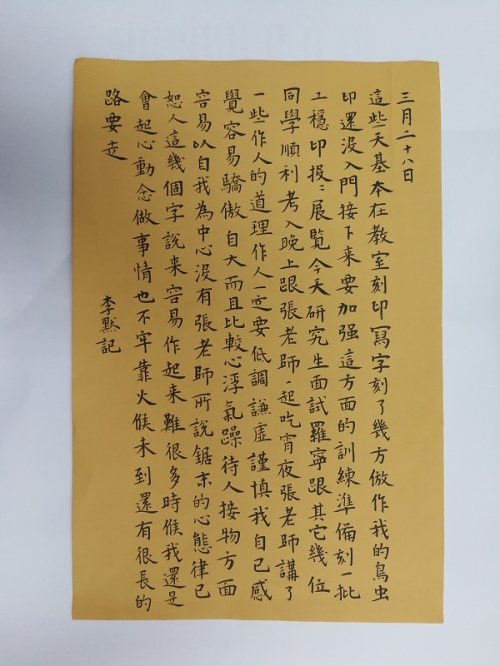 三月二十八日
這些天基本在教室刻印寫字刻了幾方倣作我的鳥虫
印還没入門接下来要加强這方面的訓練準備刻一批
工穩印投:展覽今天研究生面試羅寧跟其它幾位
同學順利考入晚上跟張老師一起吃宵夜張老師講了
一些作人的道理作人一定要低調謙虛謹慎我自己感
覺容易驕傲自大而且比較心浮氣躁待人接物方面
容易以自我為中心没有張老師所說鋸末的心態律己
恕人這幾個字說来容易作起来難很多時候我還是
會起心動念做事情也不牢靠火候未到還有很長的
路要走
李默記